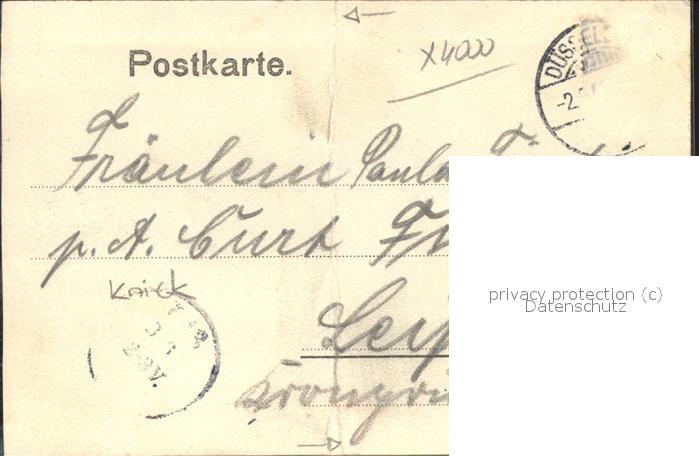 Postkarte.
x4000
DÜSSEL
-2.
Fräulein Paula
p. A. Curt
Knick
Leip
Kronpri
3 6
2-3V.
privacy protection (c)
Datenschutz